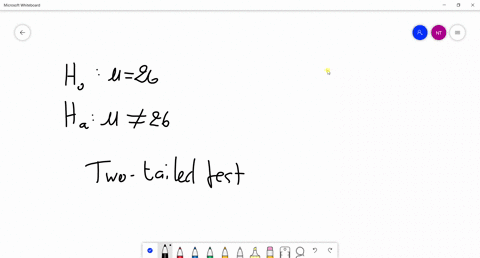 Microsoft Whiteboard
NT
H₀ : μ = 26
Hₐ : μ ≠ 26
Two-tailed test